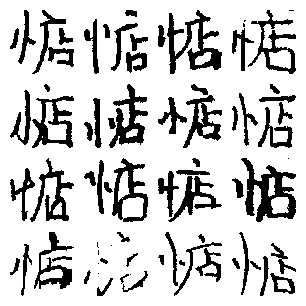 惦惦惦惦
惦惦惦惦
惦惦惦惦
惦惦惦惦